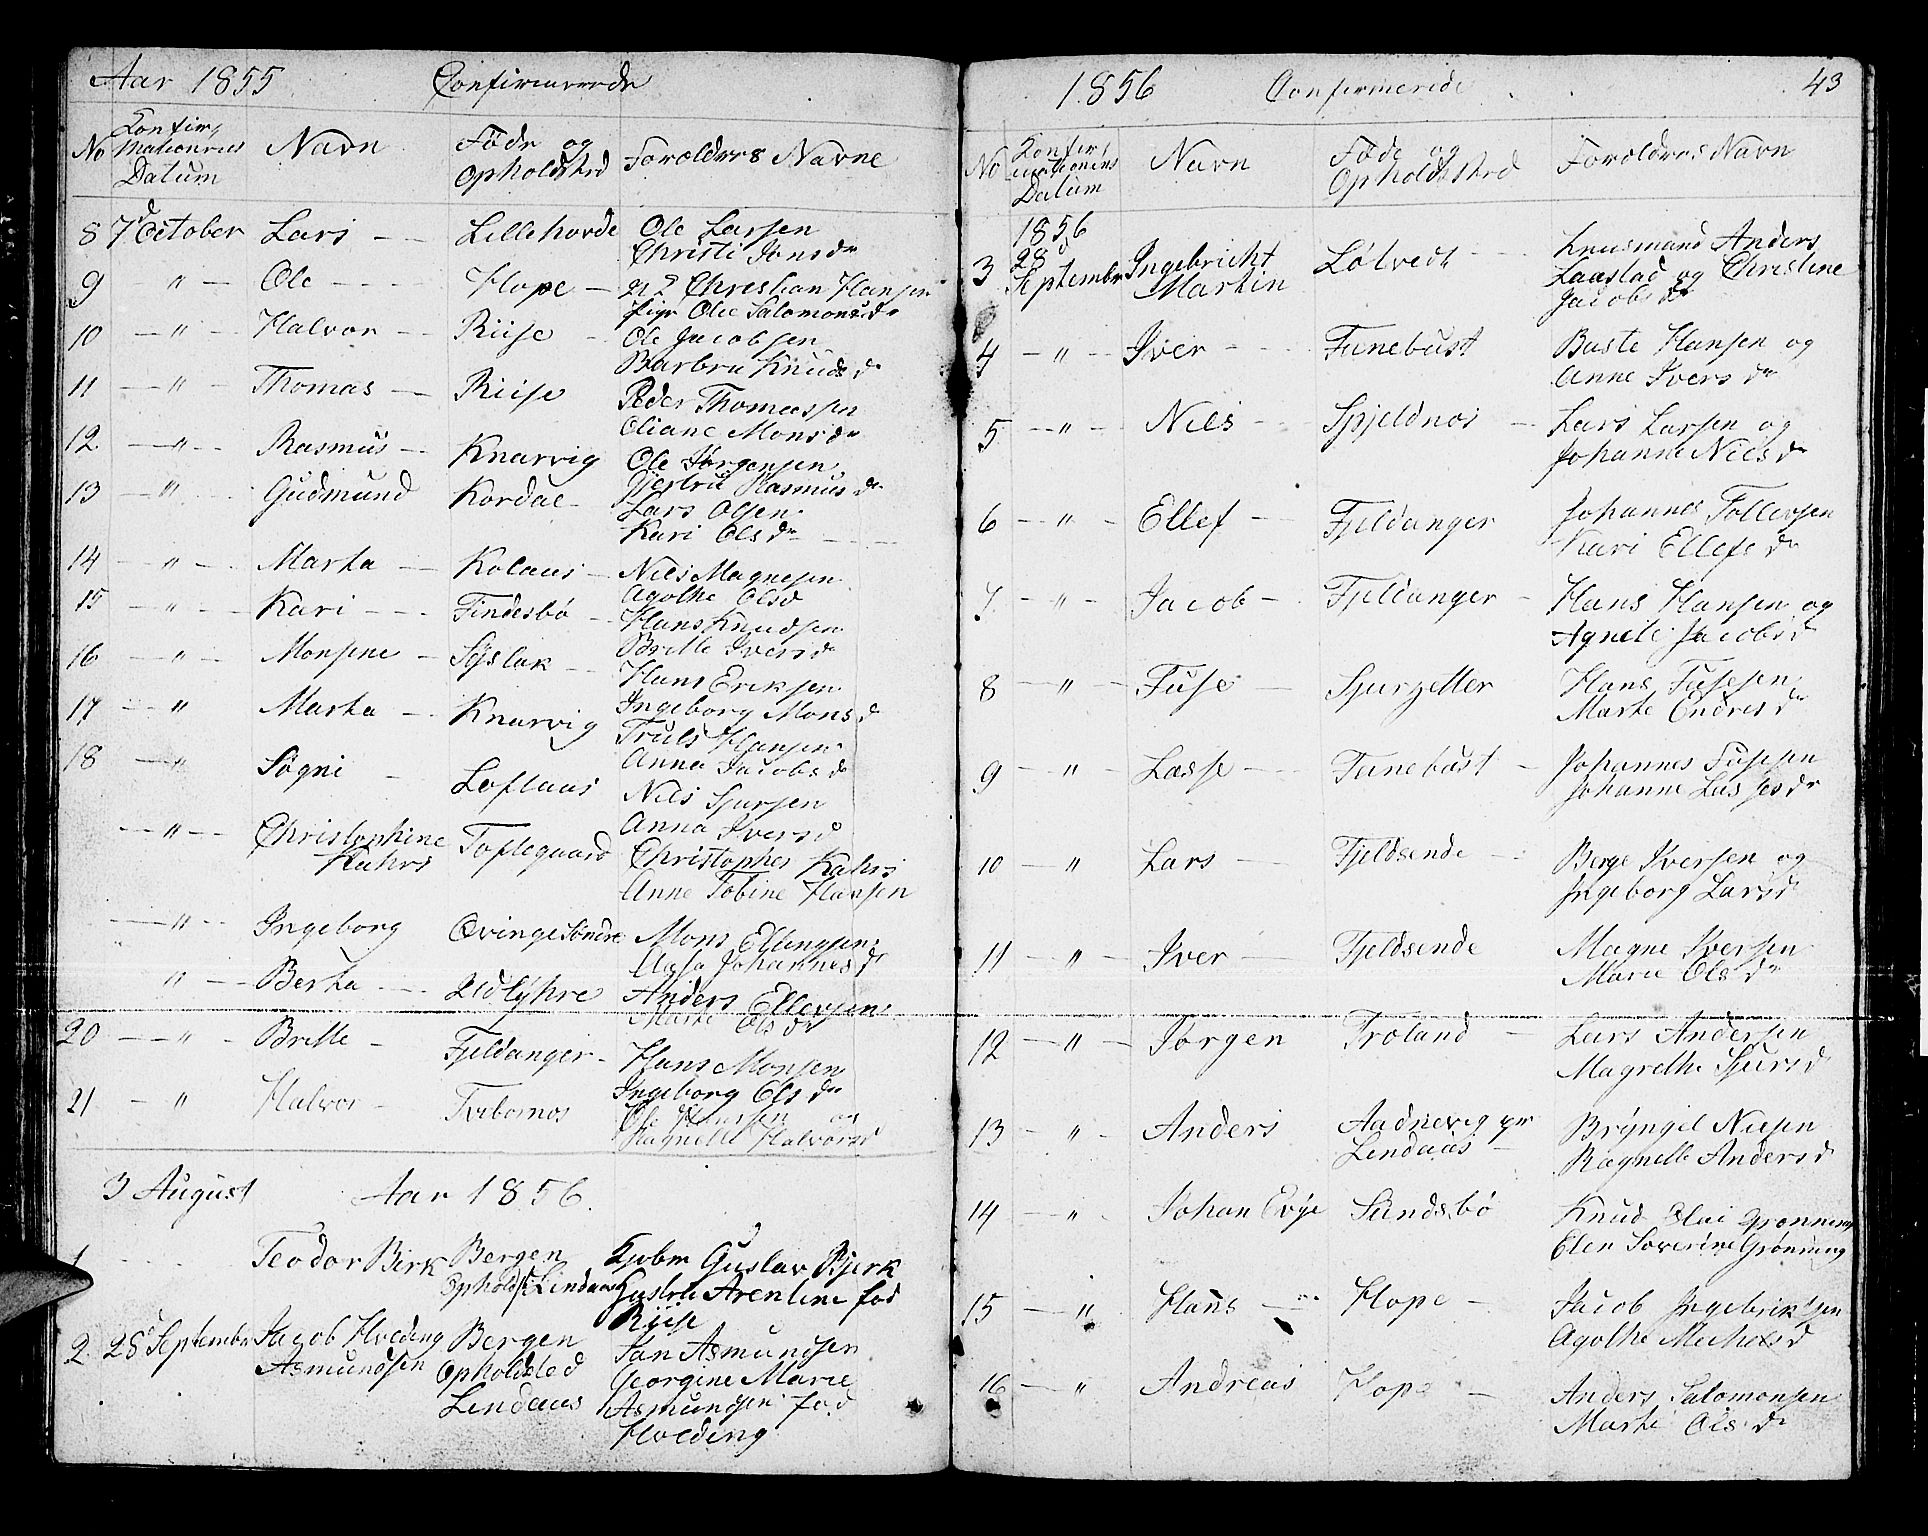 Aar 1855 Confirmerede
No Confir,mationens Datum Navn Føde og Opholdsted Forældres Navne
8 7d October Lars Lillehovde Ole Larsen
Christi Jonsdr
9 " Ole Hope Christian Hansen
pige Olie Salomonsdr
10 " Halvor Riise Ole Jacobsen
Barbru Knudsdr
11 " Thomas Riise Peder Thomassen
Oliane Monsdr
12 " Rasmus Knarvig Ole Jørgensen
Gjertru Rasmusdr
13 " Gudmund Kordal Lars Olsen
Kari Olsdr
14 " Marta Kolaas Nils Magnesen
Agothe Olsd
15 " Kari Tindesbø Hans Knudsen
Britte Iversdr
16 " Monsine Syslak Hans Eriksen
Ingeborg Monsd
17 " Marta Knarvig Truls Hansen
Anna Jacobsdr
18 " Søgni Loftaas Nils Sjursen
Anna Iversd
" Christophine Kahrs Toftegaard Christopher Kahrs
Anne Tobine Hansen
" Ingeborg Qvinge Søndre Mons Ellingsen
Johannesdr
" Berta Udlyhre Anders Ellevsen
Marte Olsdr
20 " Britte Fjeldanger Hans Monsen
Ingeborg Olsdr
21 " Halvor Tveternos Ole Hansen og
Ragnelle Halvorsd
3 August Aar 1856.
1 Teodor Birk Bergen Kjøbm Gustav Bjerk
Opholdst Lindaas Gustele Arentine fød
Riise
2. 28d September Jacob Hveding Bergen Jan Asmundsen
Asmundsen Opholdsted Georgine Marie
Lindaas Asmundsen fød
Hveding
1856 Confirmerede 43
No Confir,mationens Datum Navn Føde og Opholdsted Forældres Navn
1856
3 28d September Ingebricht Martin Løtvedt Lensmand Anders
Laastad og Christine
Jacobsdr
4 " Iver Tunebust Baste Hansen og
Anne Iversdr
5 " Nils Spjeldnos Lars Larsen og
Johanne Nilsdr
6 " Ellef Fjeldanger Johannes Tollevsen
Kari Ellefsdr
7 " Jacob Fjeldanger Hans Hansen og
Agnete Jacobsd
8 " Fuse Spurzetter Hans Fussen
Marte Endresdr
9 " Lasse Tunebust Johannes Fussen
Johanne Lassesdr
10 " Lars Fjeldsende Berge Iversen og
Ingeborg Larsd
11 " Iver Fjeldsende Magne Iversen
Marie Olsdr
12 " Jørgen Troland Lars Andersen
Magrethe Sjursd
13 " Anders Aadnevig
Lindaas Brÿngel Nilsen
Ragnelle Andersd
14 " Johan Evÿe Sundsbø Knud Olai Grønning
Elen Soverine Grønning
15 " Hans Hope Jacob Ingebriktsen
Agothe Michelsd
16 " Andreas Hope Anders Salomonsen
Marte Olsdr